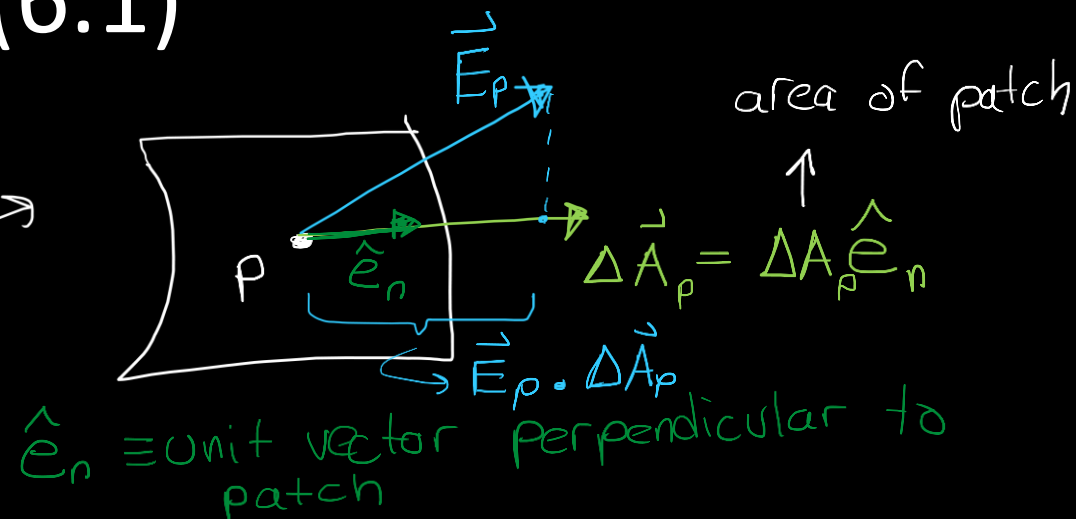 (6.1)
E⃗p
area of patch
↑
p
ê_n
ΔA⃗_p = ΔA_p ê_n
E⃗_p • ΔA⃗_p
ê_n ≡ unit vector perpendicular to
patch